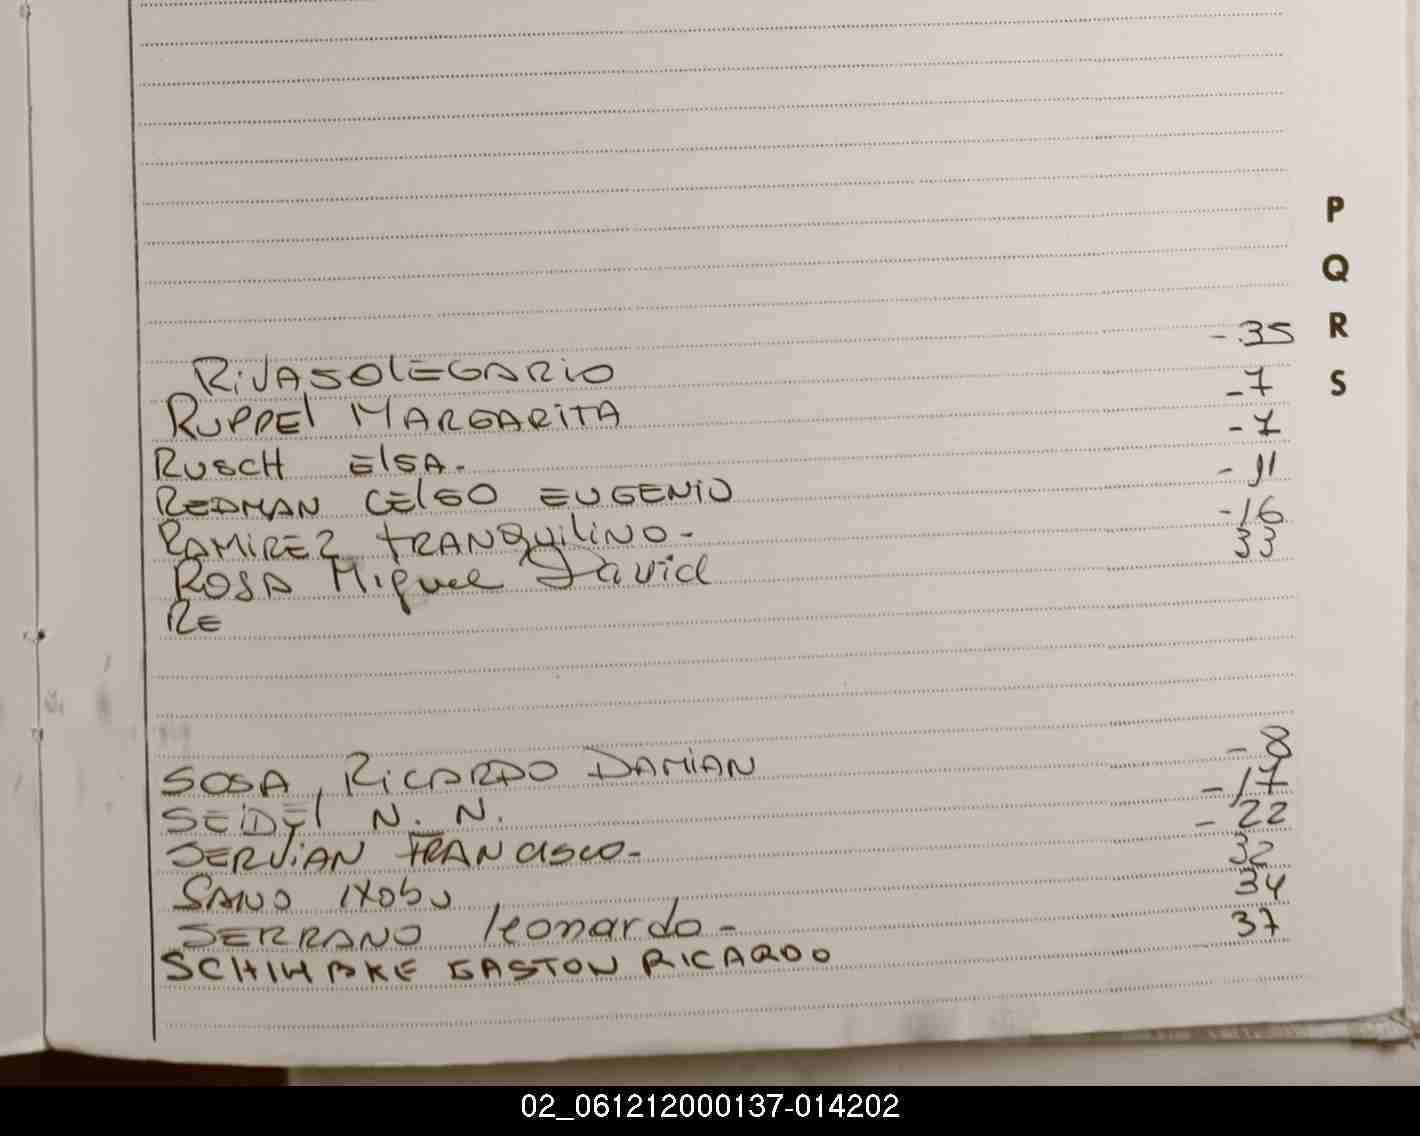 P
Q
R
S
RiVAS OlEGARiO -35
RUPPEl MARGARiTA -7
RUSCH ElSA.- -7
REDMAN CElSO EUGENiO -11
RAMiREZ TRANQUiliNO.- -16
ROSA Miguel David 33
RE
SOSA, RiCARDO DAMiAN -8
SEiDEl N. N. -17
SERViAN FRANCisco.- -22
SANO 32
SERRANO leonardo.- 34
SCHIMPKE GASTON RICARDO 37
02_061212000137-014202